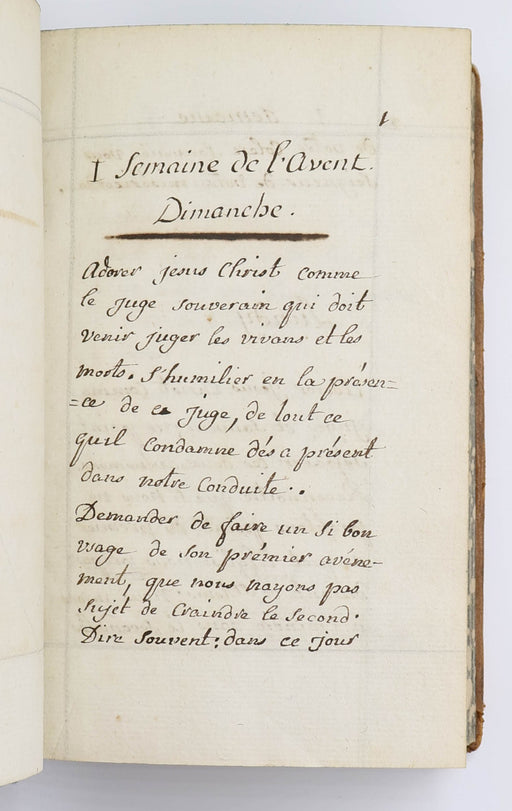 1
I Semaine de l'Avent.
Dimanche.
Adorer jesus Christ comme
le juge souverain qui doit
venir juger les vivans et les
morts. S'humilier en la présen=
=ce de ce juge, de tout ce
quil condamne dés a présent
dans notre Conduite.
Demander de faire un si bon
usage de son prémier avéne=
ment, que nous nayons pas
sujet de Craindre le second.
Dire souvent: dans ce jour